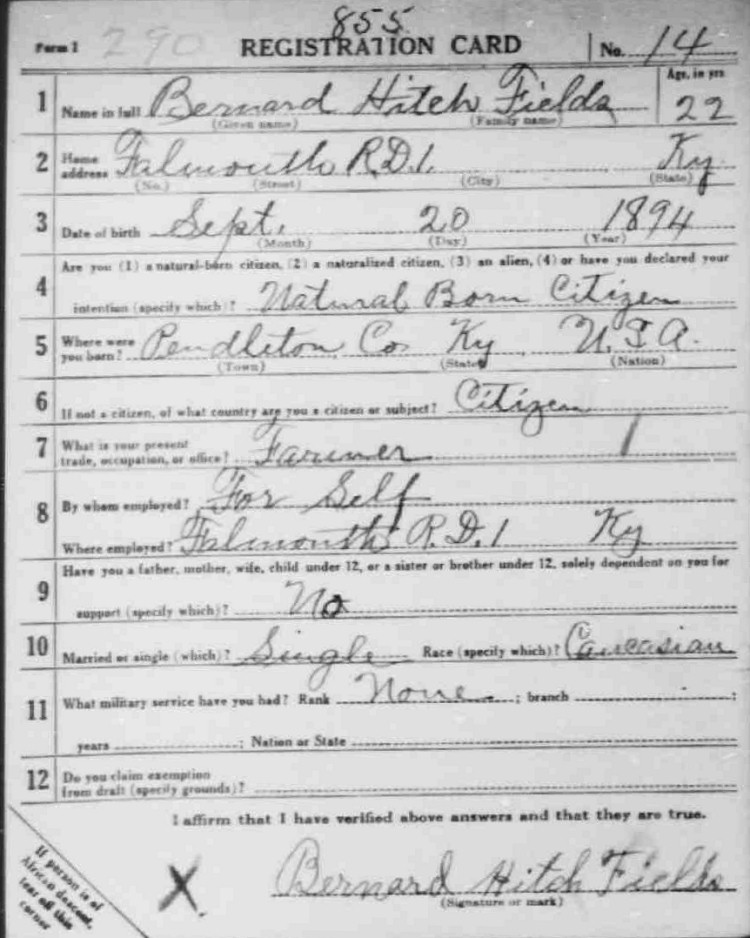 855
Form 1 290 REGISTRATION CARD No. 14
1 Name in full Bernard Hitch Fields Age, in yrs 22
(Given name) (Family name)
2 Home address Falmouth R.D.1. Ky
(No.) (Street) (City) (State)
3 Date of birth Sept. 20 1894
(Month) (Day) (Year)
4 Are you (1) a natural-born citizen, (2) a naturalized citizen, (3) an alien, (4) or have you declared your
intention (specify which)? Natural Born Citizen
5 Where were you born? Pendleton Co Ky U.S.A.
(Town) (State) (Nation)
6 If not a citizen, of what country are you a citizen or subject? Citizen
7 What is your present
trade, occupation, or office? Farmer 1
8 By whom employed? For Self
Where employed? Falmouth R.D.1 Ky
9 Have you a father, mother, wife, child under 12, or a sister or brother under 12, solely dependent on you for
support (specify which)? No
10 Married or single (which)? Single Race (specify which)? Caucasian
11 What military service have you had? Rank None ; branch ;
years ; Nation or State
12 Do you claim exemption
from draft (specify grounds)?
I affirm that I have verified above answers and that they are true.
If person is of
African descent,
tear off this
corner
X Bernard Hitch Fields
(Signature or mark)